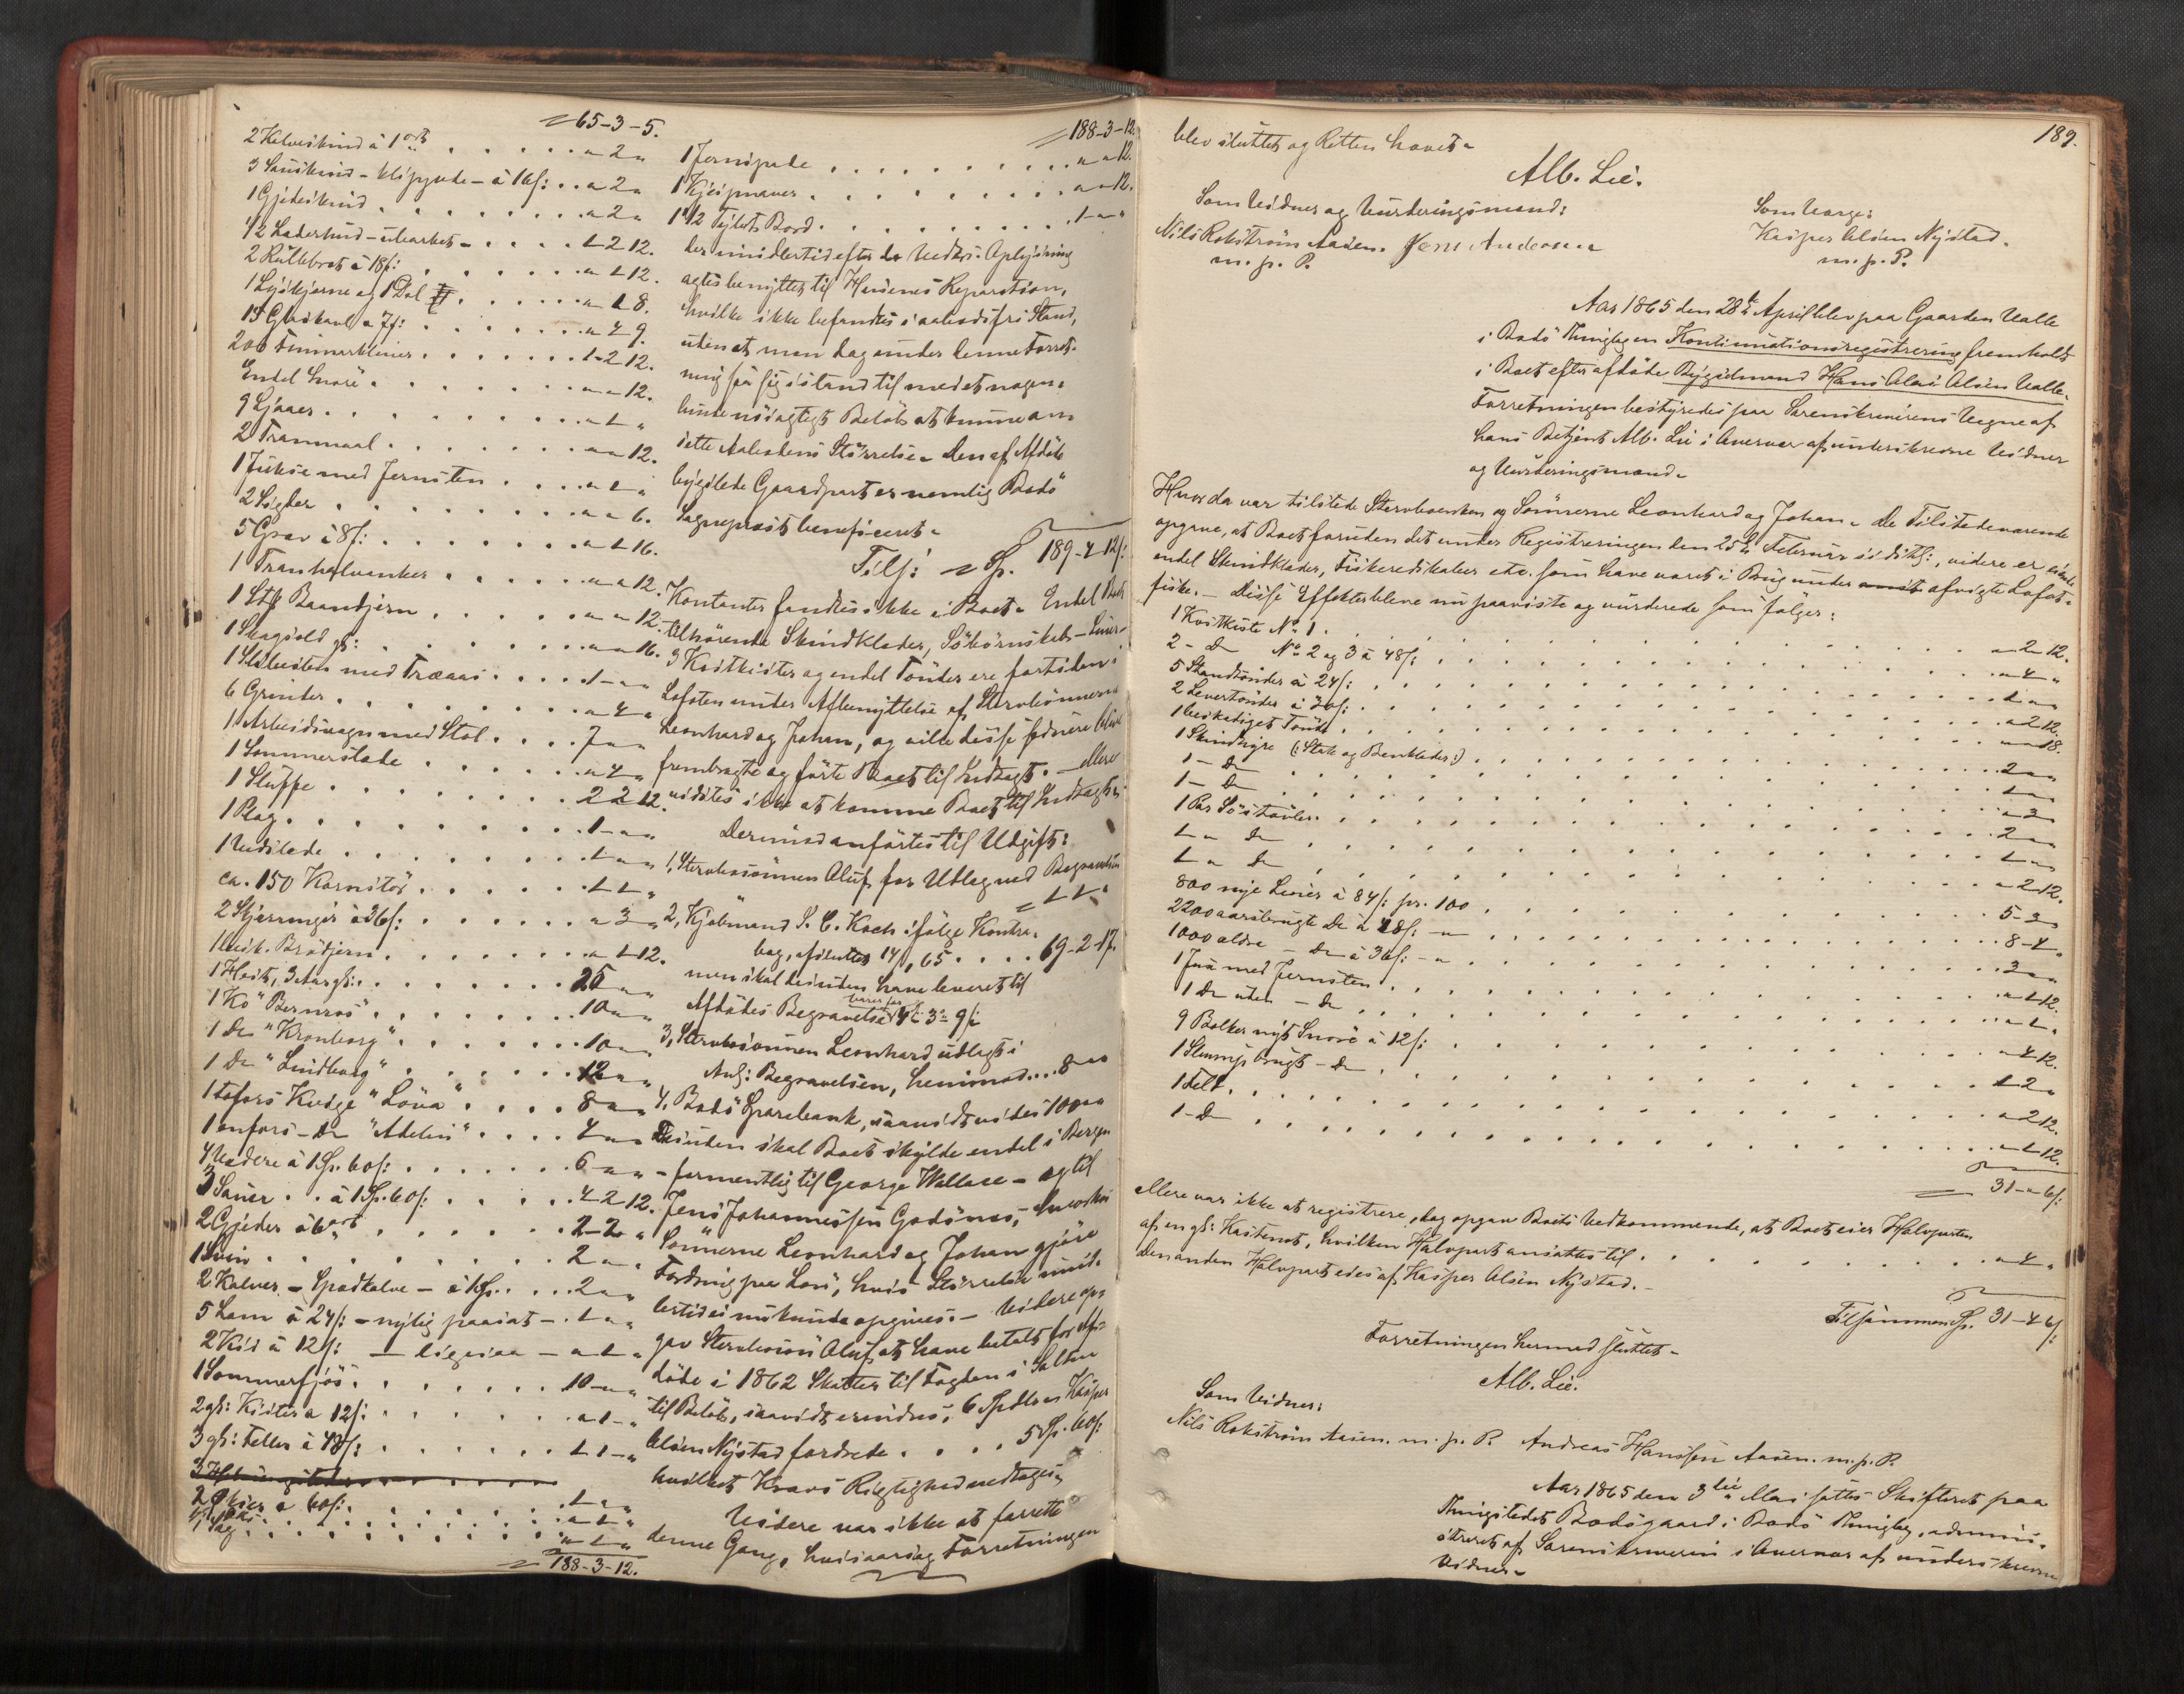 65-3-5.
2 Kalveskind à 1 ort . . . . . „ 2 „
3 Saueskind - klippede - à 16 s: . . „ 2 „
1 Gjedeskind . . . . . . „ 2 „
1/2 Læderhud - ubarket - . . . . 1-2 12.
2 Rullebret à 18 s: . . . . . „ 1 12.
1 Lysskjerne og 1 Dol . . . . „ 1 8.
15 Glaskavl a 7 s: . . . . . „ 4 9.
200 Timmerklinier . . . . . 1-2 12.
Endel Snøre . . . . . . „ „ 12.
9 Ljaaer . . . . . . . „ 1 „
2 Tranmaal . . . . . . „ „ 12.
1 Jukse med Jernsten . . . . „ 1 „
2 Sigder . . . . . . . „ „ 6.
5 Grev à 8 s: . . . . . . „ 1 16.
1 Tranhalvanker . . . . . „ „ 12.
1 Stk Baandjern . . . . . „ „ 12.
1 Skagsold gl: . . . . . . „ „ 16.
1 Slibesten med Træaas . . . . 1 - „ „
6 Grinder . . . . . . . „ 4 „
1 Arbeidsvogn med Stol . . . . 7 „ „
1 Sommerslæde . . . . . . „ 4 „
1 Sluffe . . . . . . . 2 2 12.
1 Plog . . . . . . . . 1 - „ „
1 Vedslæde . . . . . . . 1 „ „
ca. 150 Kornstør . . . . . 1 1 „
2 Skjæringer à 36 s: . . . . . „ 3 „
1 besk. Brødjern . . . . . „ 1 12.
1 Hest, 3 Aar gl: . . . . . . 25 „ „
1 Ko "Bernros" . . . . . . 10 „ „
1 Do "Kronborg" . . . . . . 10 „ „
1 Do "Lindborg" . . . . . . 12 „ „
1 tofors Kvige "Löva" . . . . 8 „ „
1 enfors - Do "Adelin" . . . . 4 „ „
4 Vædere à 1 Sp. 60 s: . . . . . 6 „ „
3 Sauer . . à 1 Sp. 60 s: . . . . 4 2 12.
2 Gjeder à 6 ort . . . . . . 2-2 „
1 Svin . . . . . . . . 2 „ „
2 Kalver - Spædkalve - à 1 Sp. . . . 2 „ „
5 Lam à 24 s: - nylig paasat - . 1 „ „
2 Kid à 12 s: - ligesaa - „ 1 „
1 Sommerfjös . . . . . . 10 „ „
2 gl: Kister a 12 s: . . . . . „ 1 - „
3 gl: Feller à 48 s: . . . . . 1 1 - „
2 Skier a 60 s: . . . . . . 1 „ „
1 Sag . . . . . . . „ 1 „
188-3-12.
188-3-12.
1 Jernspade . . . . . . . . . „ „ 12.
1 Kjeipmaver . . . . . . . . . „ „ 12.
1 1/2 Tylvt Bord . . . . . . . . . 1 - „ „
der imidlertid efter de Vedks: Oplysning
agtes benyttet til Husenes Reparation,
hvilke ikke befandtes i aabodsfri Stand,
uden at man dog under denne Forret-
ning saa sig istand til med et nogen-
lunde nöiagtigt Belöb at kunne an-
sætte Aabodens Störrelse. Den af Afdöde
bygslede Gaardpart er nemlig Bodö
Sognepræst beneficeret.
Tils: Sp. 189-4-12 s:
Kontanter fandtes ikke i Boet. Endel Boet
tilhörende Skindklæder, Söbörnskab - Liner -
3 Kostkister og endel Tönder ere fortiden i
Lofoten under Afbenyttelse af Stervbosönnerne
Leonhard og Johan, og ville disse sednere blive
frembragte og förte Boet til Indtægt. Mere
vidstes ikke at komme Boet til Indtægt.
Dernæst anförtes til Udgift:
1, Stervbosönnen Oluf for Udlæg ved Begravelsen
1 1 „
2, Kjöbmand S. C. Koch ifölge Kontra-
bog, afsluttet 14/1 65 . . . . 69-2-17.
men skal desuden have leveret til
Afdödes Begravelse varer for 4-3-9 s:
3, Stervbosönnen Leonhard udlagt i
Anl: Begravelsen, henimod . . . 8 „ „
4, Bodö Sparebank, saavidt vides 100 „ „
Desuden skal Boet skylde endel i Bergen
- formentlig til George Wallace - og til
Jens Johannessen Godönes, hvorhos
Sönnerne Leonhard og Johan gjöre
Fordring paa Lön, hvis Störrelse imid-
lertid ei nu kunde opgives. - Videre op-
gav Stervbosön Oluf at have betalt for Af-
döde i 1862 Skatter til Fogden i Salten
til Belöb, saavidt erindres, 6 Spdlr. Kasper
Olsen Nystad fordrede . . . . 5 Sp. 60 s:
hvilket Kravs Rigtighed vedtoges.
Videre var ikke at forrette
denne Gang, hvisaarsag Forretningen
189.
blev sluttet og Retten hævet.
Alb. Lie.
Som Vidner og Vurderingsmænd:
Nils Rokström Aasen. Jens Andersen
m. p. P.
Som Værge:
Kasper Olsen Nystad.
m. p. P.
Aar 1865 den 28de April blev paa Gaarden Valle
i Bodö Thinglag en Kontinuationsregistrering fremholdt
i Boet efter afdöde Bygselmand Hans Olai Olsen Valle.
Forretningen bestyredes paa Sorenskriverens Vegne af
hans Betjent Alb. Lie i Overvær af underskrevne Vidner
og Vurderingsmænd.
Hvor da var tilstede Stervboenken og Sönnerne Leonhard og Johan. De Tilstedeværende
opgave, at Boet foruden det under Registreringen den 25de Februar sidstl:, videre er eiende
endel Skindklæder, Fiskeredskaber etc. som have været i Brug under afvigte Lofot-
fiske. - Disse Effekter bleve nu paaviste og vurderede som fölger:
1 Kostkiste No 1 . . . . . . . „ 2 12.
2 - Do No 2 og 3 à 48 s: . . . . . „ 4 „
5 Standtönder à 24 s: . . . . . . 1 „ „
2 Levertönder à 30 s: . . . . . . „ 2 12.
1 beskadiget Tönde . . . . . . „ „ 18.
1 Skindhyre (: Stak og Benklæder :) . . . . 2 „ „
1 - Do . . . . . . . 1 „ „
1 - Do . . . . . . . „ 3 „
1 Par Söstövler . . . . . . . 2 „ „
1 „ Do . . . . . . . 1 „ „
1 „ Do . . . . . . . „ 2 12.
800 nye Liner à 84 s: pr. 100 . . . . . 5-3 „
2200 aarsbrugte Do à 48 s: - „ . . . . . 8-4 „
1000 ældre - Do à 36 s: - „ . . . . . 3 „ „
1 Jua med Jernsten . . . . . . „ 1 12.
1 Do uden - Do . . . . . . „ 1 „
9 Bolker nyt Snöre à 12 s: . . . . . „ 4 12.
1 Slump brugt - Do . . . . . . 1 2 „
1 Felt . . . . . . . „ 2 12.
1 - Do . . . . . . . „ 1 12.
31 - „ 6 s:
Mere var ikke at registrere, dog opgav Boets Vedkommende, at Boet eier Halvparten
af en gl: Kastenot, hvilken Halvpart ansattes til . . . . . . . „ 4 „
Den anden Halvpart eies af Kasper Olsen Nystad. -
Tilsammen Sp. 31-4 6 s:
Forretningen hermed sluttet.
Alb. Lie.
Som Vidner:
Nils Rokström Aasen. m. p. P. Andreas Hanssen Aasen. m. p. P.
Aar 1865 den 3die Mai sattes Skifteret paa
Thingstedet Bodögaard i Bodö Thinglag, admini-
streret af Sorenskriveren i Overvær af underskrevne
Vidner.